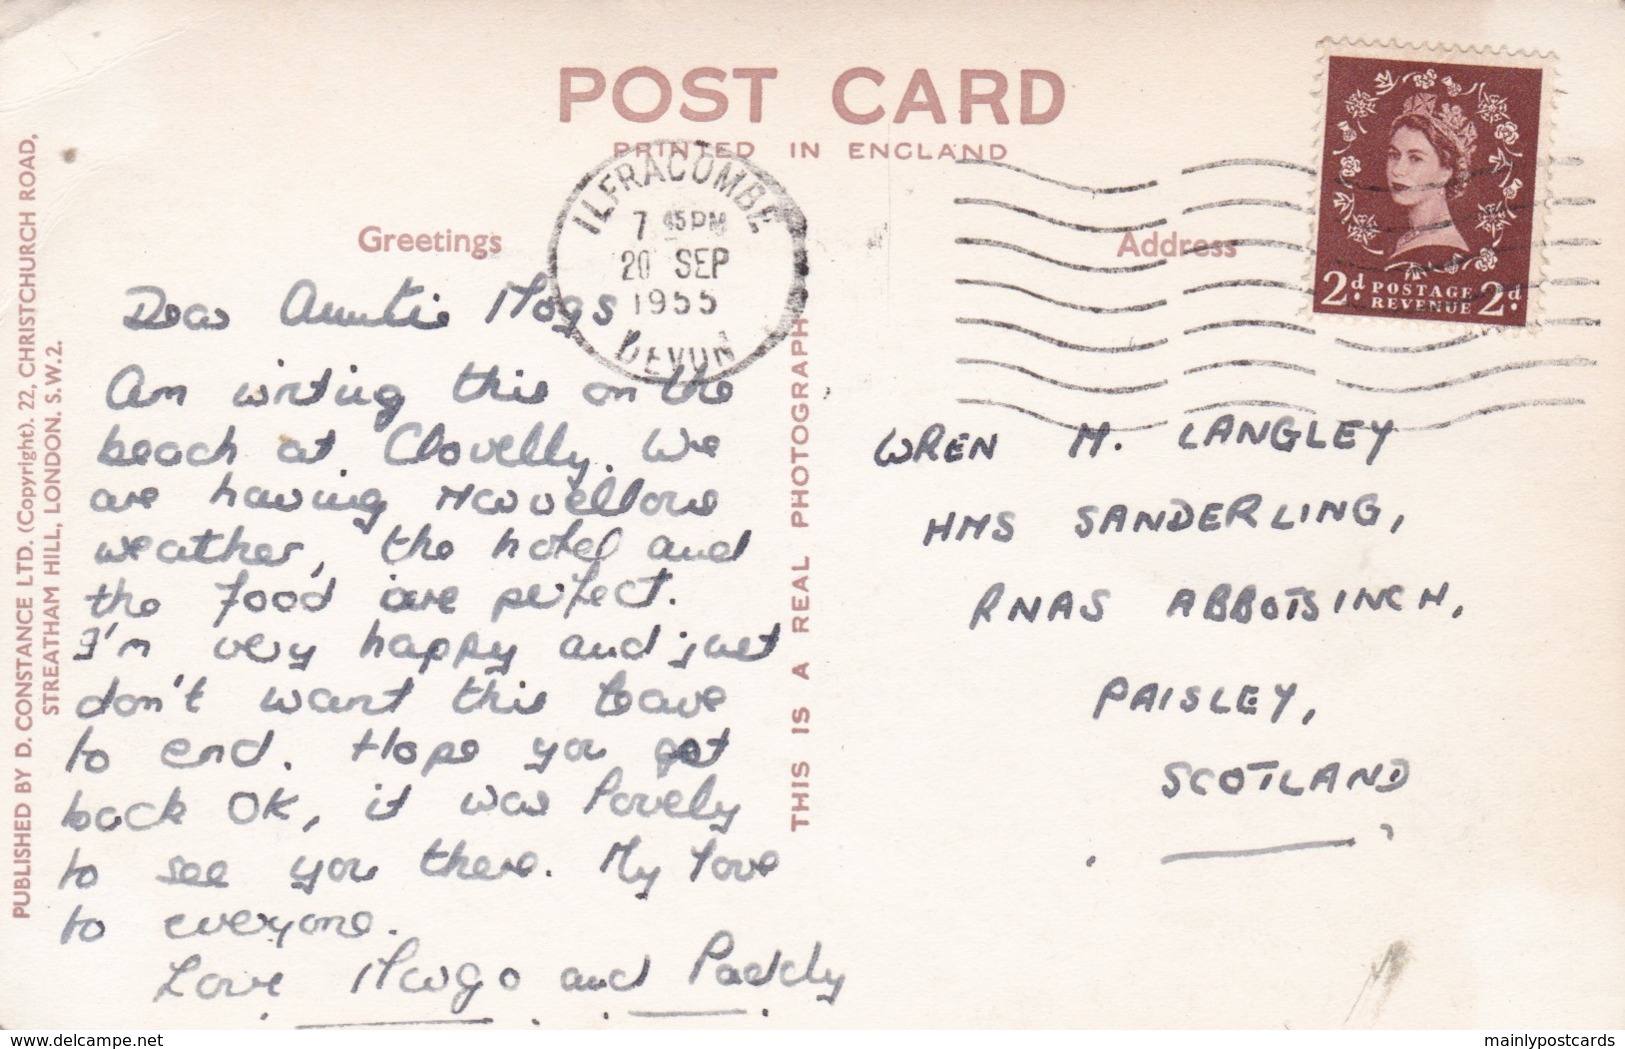 POST CARD
PRINTED IN ENGLAND
Greetings
Address
ILFRACOMBE
7 45 PM
20 SEP
1955
DEVON
2d. POSTAGE 2d.
REVENUE
Dear Auntie Mogs
Am writing this on the
beach at Clovelly. We
are having marvellous
weather, the hotel and
the food are perfect.
I'm very happy and just
don't want this leave
to end. Hope you got
back OK, it was lovely
to see you there. My love
to everyone.
Love Margo and Paddy
WREN M. LANGLEY
HMS SANDERLING,
RNAS ABBOTSINCH,
PAISLEY,
SCOTLAND
PUBLISHED BY D. CONSTANCE LTD. (Copyright). 22, CHRISTCHURCH ROAD,
STREATHAM HILL, LONDON. S.W.2.
THIS IS A REAL PHOTOGRAPH
www.delcampe.net
mainlypostcards